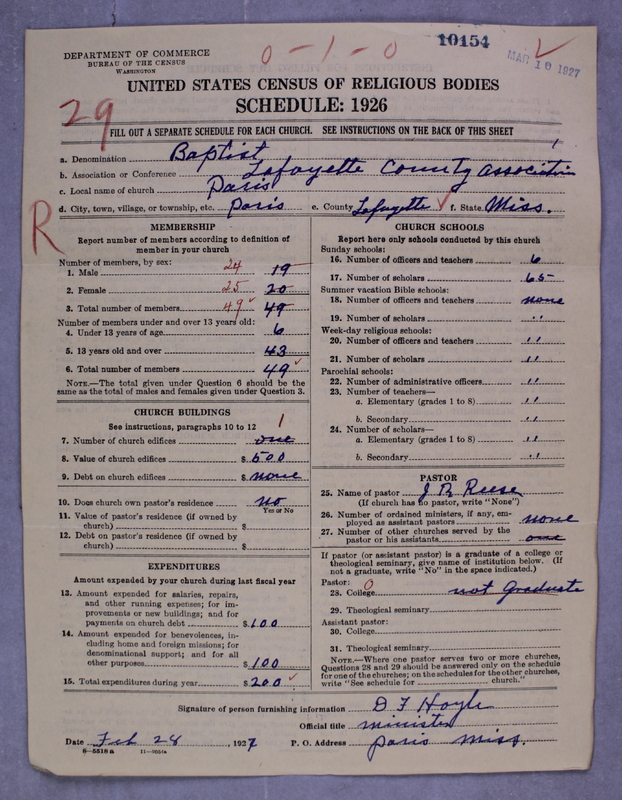 DEPARTMENT OF COMMERCE
BUREAU OF THE CENSUS
WASHINGTON
0-1-0
10154
MAR 10 1927
UNITED STATES CENSUS OF RELIGIOUS BODIES
SCHEDULE: 1926
29
FILL OUT A SEPARATE SCHEDULE FOR EACH CHURCH. SEE INSTRUCTIONS ON THE BACK OF THIS SHEET
a. Denomination Baptist
b. Association or Conference Lafayette County association
c. Local name of church Paris
d. City, town, village, or township, etc. Paris e. County Lafayette f. State Miss.
R
MEMBERSHIP
Report number of members according to definition of
member in your church
Number of members, by sex:
1. Male 24 19
2. Female 25 20
3. Total number of members 49 49
Number of members under and over 13 years old:
4. Under 13 years of age 6
5. 13 years old and over 43
6. Total number of members 49
NOTE.—The total given under Question 6 should be the
same as the total of males and females given under Question 3.
CHURCH BUILDINGS
See instructions, paragraphs 10 to 12 1
7. Number of church edifices one
8. Value of church edifices $ 500
9. Debt on church edifices $ none
10. Does church own pastor's residence no
Yes or No
11. Value of pastor's residence (if owned by
church) $
12. Debt on pastor's residence (if owned by
church) $
EXPENDITURES
Amount expended by your church during last fiscal year
13. Amount expended for salaries, repairs,
and other running expenses; for im-
provements or new buildings; and for
payments on church debt $ 100
14. Amount expended for benevolences, in-
cluding home and foreign missions; for
denominational support; and for all
other purposes $ 100
15. Total expenditures during year $ 200
CHURCH SCHOOLS
Report here only schools conducted by this church
Sunday schools:
16. Number of officers and teachers 6
17. Number of scholars 65
Summer vacation Bible schools:
18. Number of officers and teachers none
19. Number of scholars "
Week-day religious schools:
20. Number of officers and teachers "
21. Number of scholars "
Parochial schools:
22. Number of administrative officers "
23. Number of teachers—
a. Elementary (grades 1 to 8) "
b. Secondary "
24. Number of scholars—
a. Elementary (grades 1 to 8) "
b. Secondary "
PASTOR
25. Name of pastor J R Reese
(If church has no pastor, write "None")
26. Number of ordained ministers, if any, em-
ployed as assistant pastors none
27. Number of other churches served by the
pastor or his assistants one
If pastor (or assistant pastor) is a graduate of a college or
theological seminary, give name of institution below. (If
not a graduate, write "No" in the space indicated.)
Pastor: 0
28. College not Graduate
29. Theological seminary
Assistant pastor:
30. College
31. Theological seminary
NOTE.—Where one pastor serves two or more churches,
Questions 28 and 29 should be answered only on the schedule
for one of the churches; on the schedules for the other churches,
write "See schedule for church."
Signature of person furnishing information D F Hoyle
Official title minister
Date Feb 28, 1927 P. O. Address Paris Miss.
8—5518 a